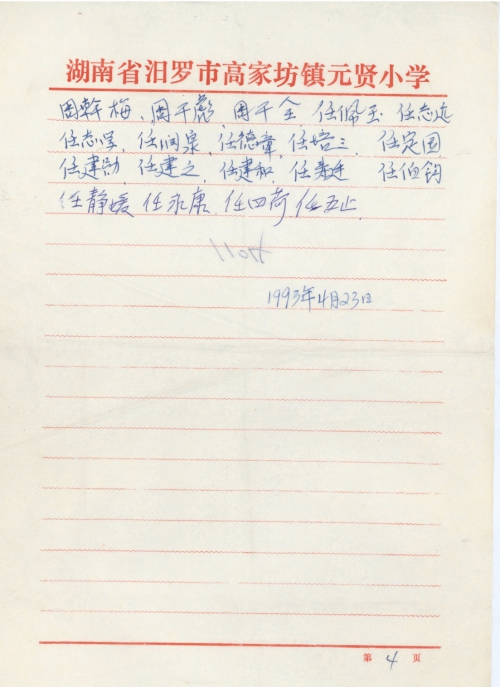 湖南省汨罗市高家坊镇元贤小学
周幹梅、周千彪、周千全、任佩玉、任志远
任志学、任润泉、任德章、任培三、任定国
任建勋、任建之、任建和、任寿廷、任伯钧
任静媛、任永康、任四荷、任五止、
1993年4月23日
第 4 页